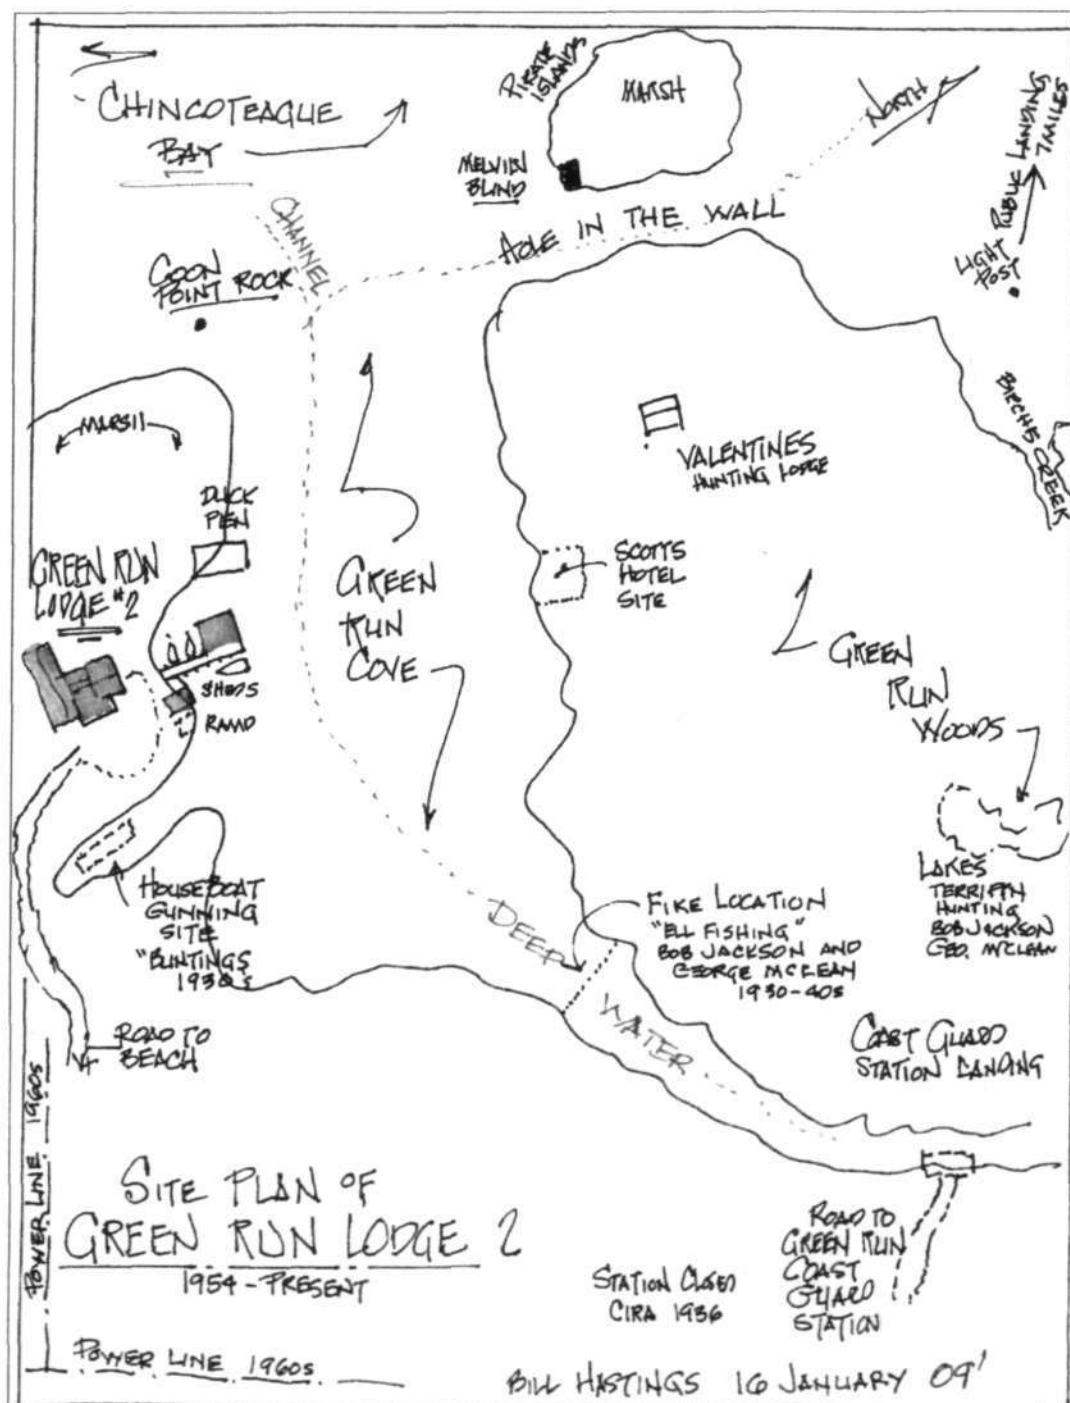 CHINCOTEAGUE
BAY
PIRATE
ISLANDS
MARSH
MELVIN
BLIND
NORTH
PUBLIC LANDING
7 MILES
LIGHT
POST
CHANNEL
HOLE IN THE WALL
COON
POINT ROCK
BIRCHES CREEK
MARSH
VALENTINES
HUNTING LODGE
DUCK
PEN
GREEN RUN
LODGE #2
SHEDS
RAMP
GREEN
RUN
COVE
SCOTTS
HOTEL
SITE
GREEN
RUN
WOODS
LAKES
TERRIFFN
HUNTING
BOB JACKSON
GEO. MCLEAN
HOUSEBOAT
GUNNING
SITE
"BUNTINGS
1930s
DEEP
WATER
FIKE LOCATION
"ELL FISHING"
BOB JACKSON AND
GEORGE MCLEAN
1930-40s
ROAD TO
BEACH
COAST GUARD
STATION LANDING
POWER LINE 1960s
SITE PLAN OF
GREEN RUN LODGE 2
1954 - PRESENT
STATION CLOSED
CIRA 1936
ROAD TO
GREEN RUN
COAST
GUARD
STATION
POWER LINE 1960s
BILL HASTINGS 16 JANUARY 09'